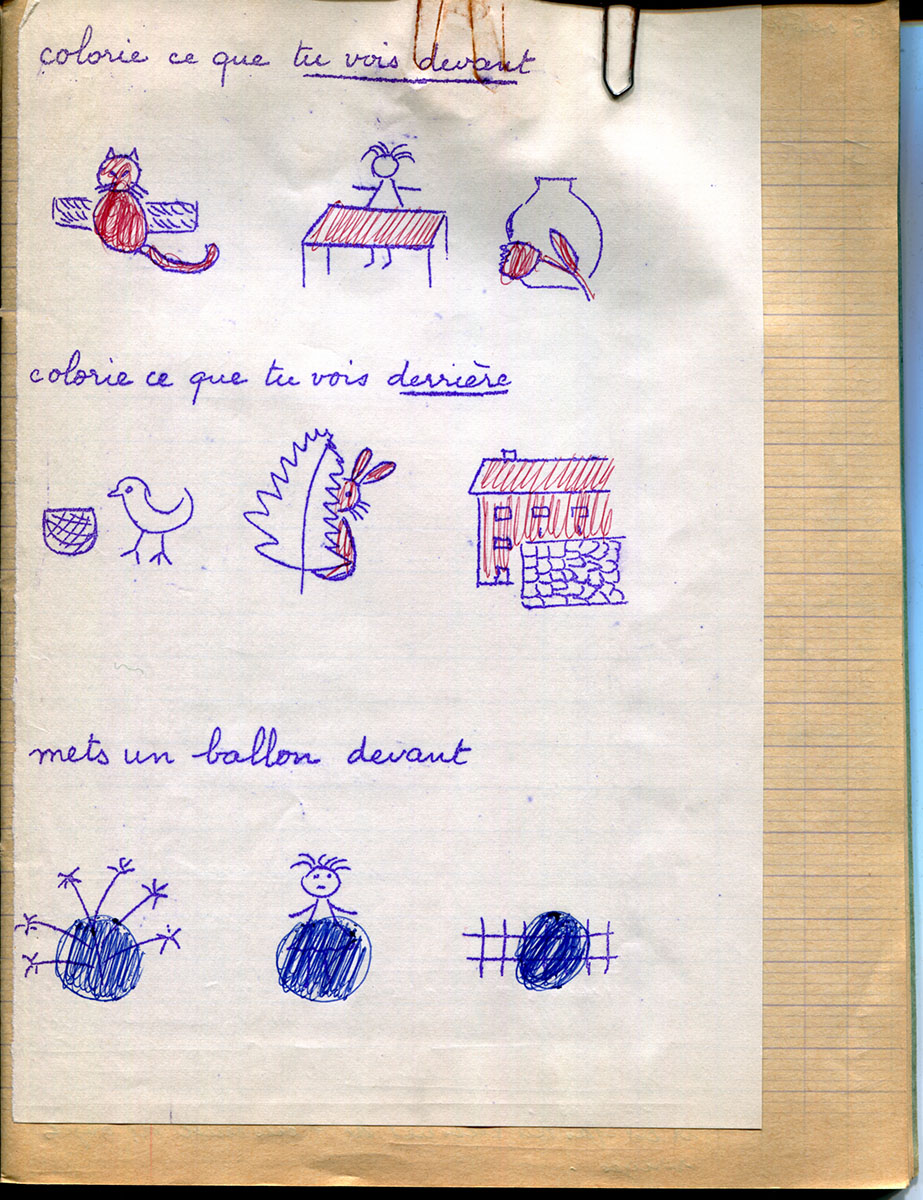 colorie ce que tu vois devant
colorie ce que tu vois derrière
mets un ballon devant